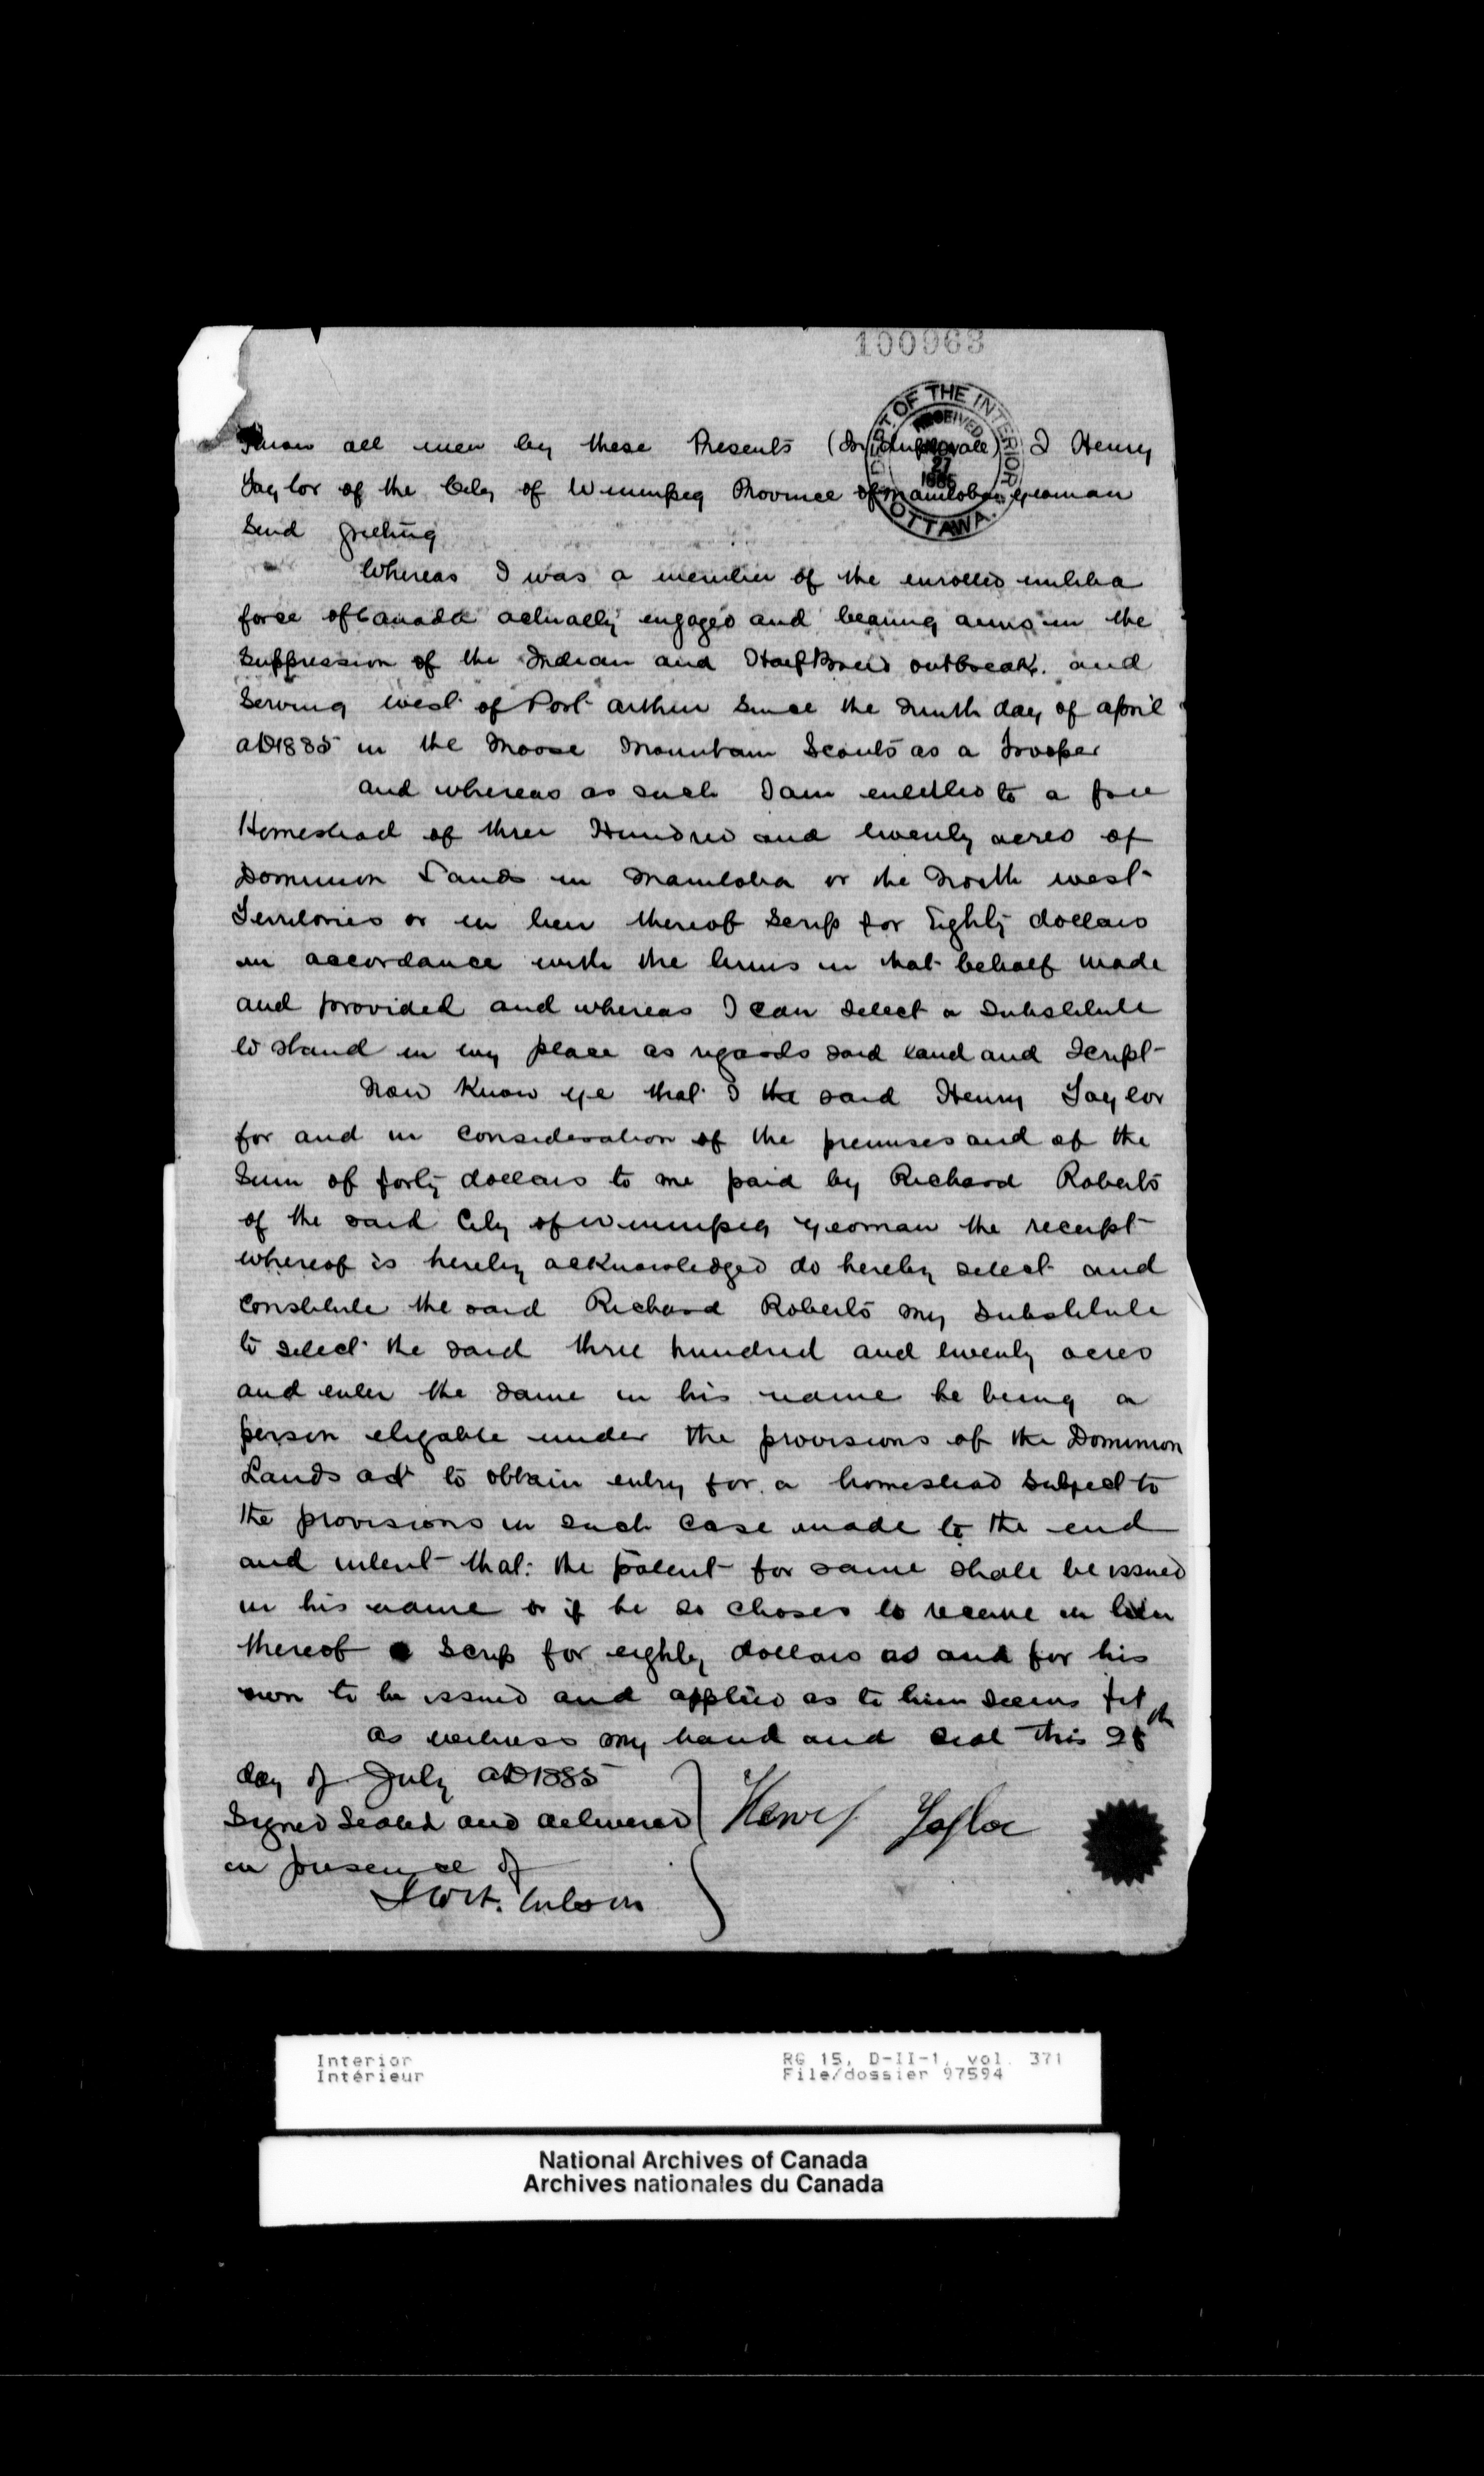 100963
DEPT. OF THE INTERIOR
RECEIVED
NOV
27
1885
OTTAWA.
Know all men by these Presents (In duplicate) I Henry
Taylor of the City of Winnipeg Province of Manitoba yeoman
Send greeting
Whereas I was a member of the enrolled militia
force of Canada actually engaged and bearing arms in the
Suppression of the Indian and HalfBreed outbreak. and
Serving west of Port arthur Since the day of april
AD1885 in the Moose Mountain Scouts as a Trooper
and whereas as such I am entitled to a free
Homestead of three Hundred and twenty acres of
Dominion Lands in Manitoba or the North west
Territories or in lieu thereof Scrip for Eighty dollars
in accordance with the terms in that behalf made
and provided and whereas I can select a Substitute
to stand in my place as regards said land and Script
Now Know ye that I the said Henry Taylor
for and in consideration of the premises and of the
Sum of forty dollars to me paid by Richard Roberts
of the said City of Winnipeg yeoman the receipt
whereof is hereby acknowledged do hereby select and
constitute the said Richard Roberts my Substitute
to select the said three hundred and twenty acres
and enter the same in his name he being a
person eligable under the provisions of the Dominion
Lands act to obtain entry for a homestead subject to
the provisions in such case made to the end
and intent that the patent for same shall be issued
in his name or if he so choses to receive in lieu
thereof Scrip for eighty dollars as and for his
own to be issued and applied as to him seems fit
As witness my hand and seal this 28th
day of July AD1885
Signed Sealed and delivered
in presence of
Henry Taylor
Interior
Intérieur
RG 15, D-II-1, vol. 371
File/dossier 97594
National Archives of Canada
Archives nationales du Canada